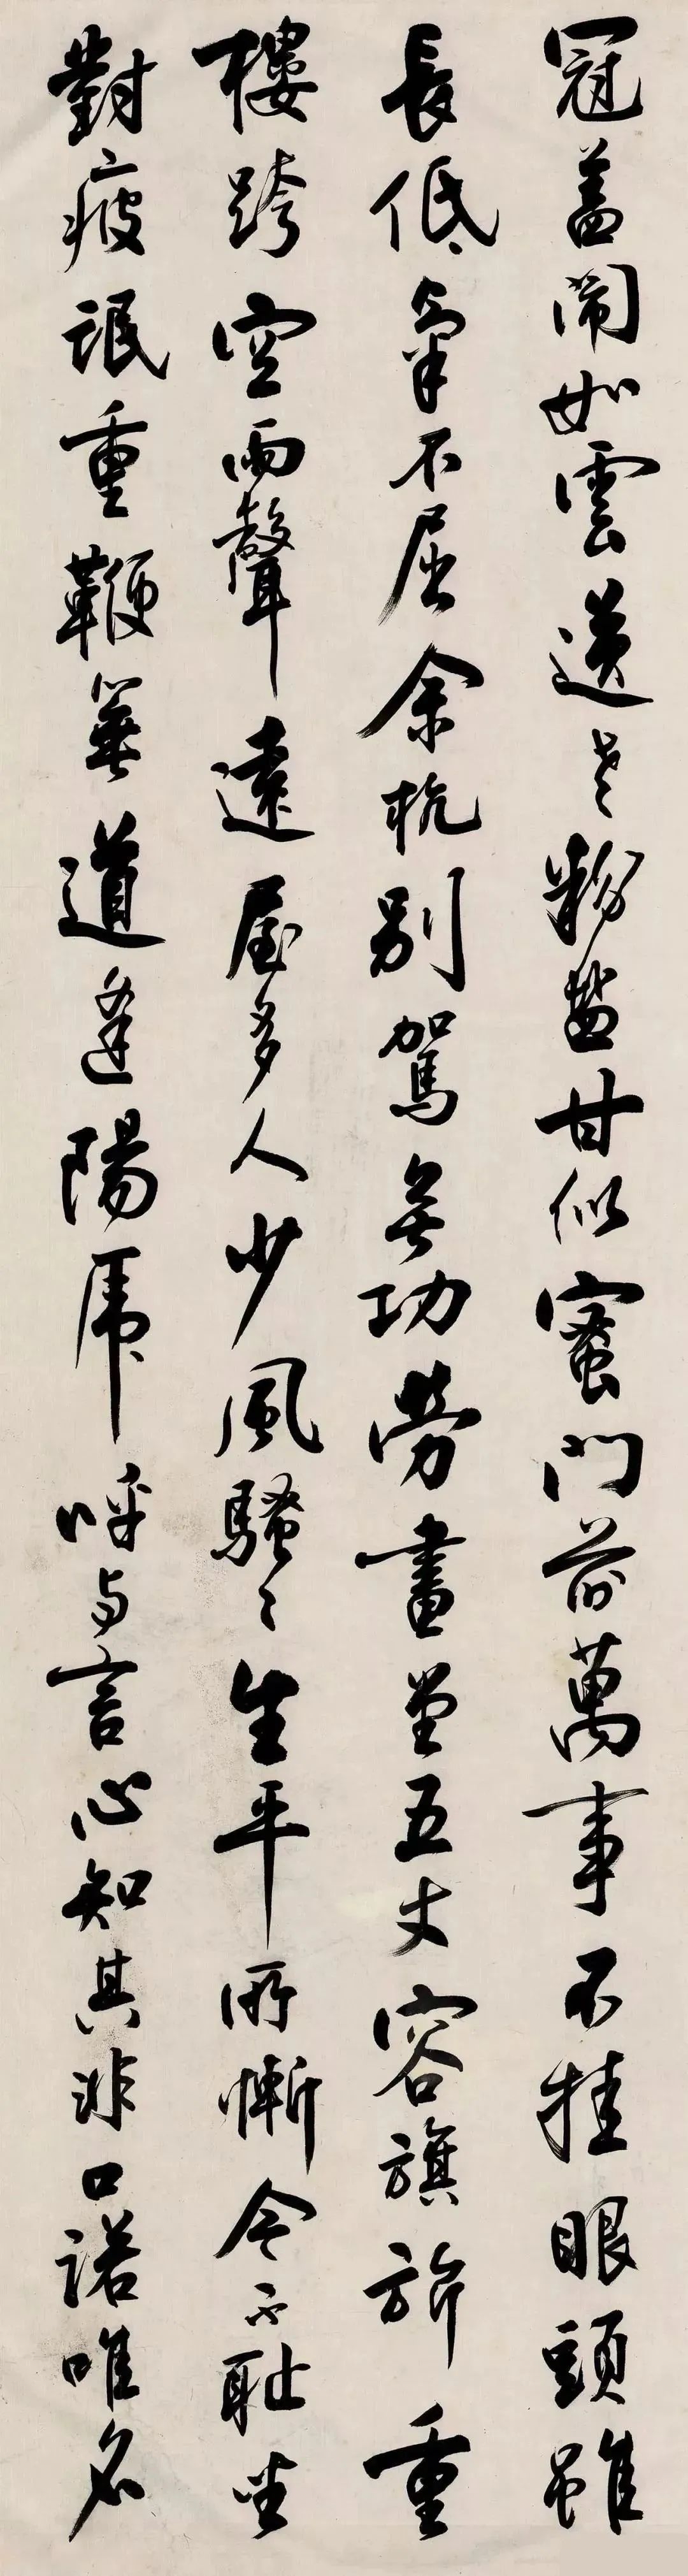 冠盖閙如雲老粉盐甘似蜜門前萬事不挂眼頭雖
長低氣不屈余杭別駕無功勞畫堂五丈容旗旂重
樓跨空雨聲遠屋多人少風騷々生平所慚今不耻坐
對疲氓重鞭箠道逢陽虎呼与言心知其非口諾唯名